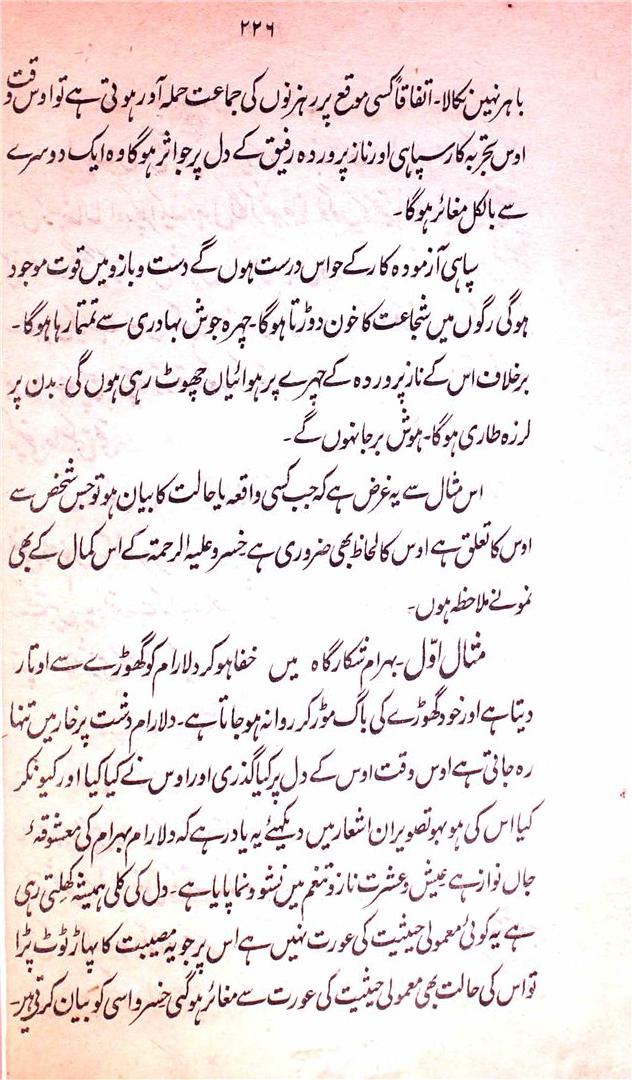 ۲۲۶
باہر نہین نکالا۔ اتفاقاً کسی موقع پر رہزنوں کی جماعت حملہ آور ہوتی ہے تو اوس وقت
اوس تجربہ کار سپاہی اور ناز پروردہ رفیق کے دل پر جو اثر ہوگا وہ ایک دوسرے
سے بالکل مغائر ہوگا۔
سپاہی آزمودہ کار کے حواس درست ہوں گے دست و بازو میں قوت موجود
ہوگی رگوں میں شجاعت کا خون دوڑتا ہوگا۔ چہرہ جوش بہادری سے تمتما رہا ہوگا۔
برخلاف اس کے ناز پروردہ کے چہرے پر ہوائیاں چھوٹ رہی ہوں گی۔ بدن پر
لرزہ طاری ہوگا۔ ہوش برجا نہوں گے۔
اس مثال سے یہ غرض ہے کہ جب کسی واقعہ یا حالت کا بیان ہو تو جس شخص سے
اوس کا تعلق ہے اوس کا لحاظ بھی ضروری ہے خسرو علیہ الرحمۃ کے اس کمال کے بھی
نمونے ملاحظہ ہوں۔
مثال اوّل۔ بہرام شکارگاہ میں خفا ہو کر دلارام کو گھوڑے سے اوتار
دیتا ہے اور خود گھوڑے کی باگ موڑ کر روانہ ہوجاتا ہے۔ دلارام دشت پر خار میں تنہا
رہ جاتی ہے اوس وقت اوس کے دل پر کیا گذری اور اوس نے کیا کیا اور کیونکر
کیا اس کی ہو بہو تصویر ان اشعار میں دیکھئے یہ یاد رہے کہ دلارام بہرام کی معشوقۂ
جاں نواز ہے عیش و عشرت ناز و تنعم میں نشو و نما پایا ہے۔ دل کی کلی ہمیشہ کھلتی رہی
ہے یہ کوئی معمولی حیثیت کی عورت نہیں ہے اس پر جو یہ مصیبت کا پہاڑ ٹوٹ پڑا
تو اس کی حالت بھی معمولی حیثیت کی عورت سے مغائر ہوگی خسرو اسی کو بیان کرتے ہیں۔